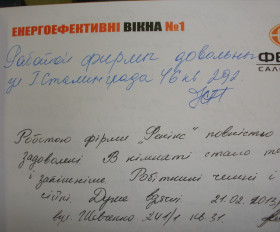 ЕНЕРГОЕФЕКТИВНІ ВІКНА №1
ФЕ
САЛО
Работой фирмы довольны
ул Г Сталинграда 46 кв 292
Роботою фірми "Фенікс" повністю
задоволені В кімнаті стало те
і затишніше. Робітники чемні і
світі. Дуже вдячні. 21.02.2013
вул. Шевченко 241/1 кв. 31.